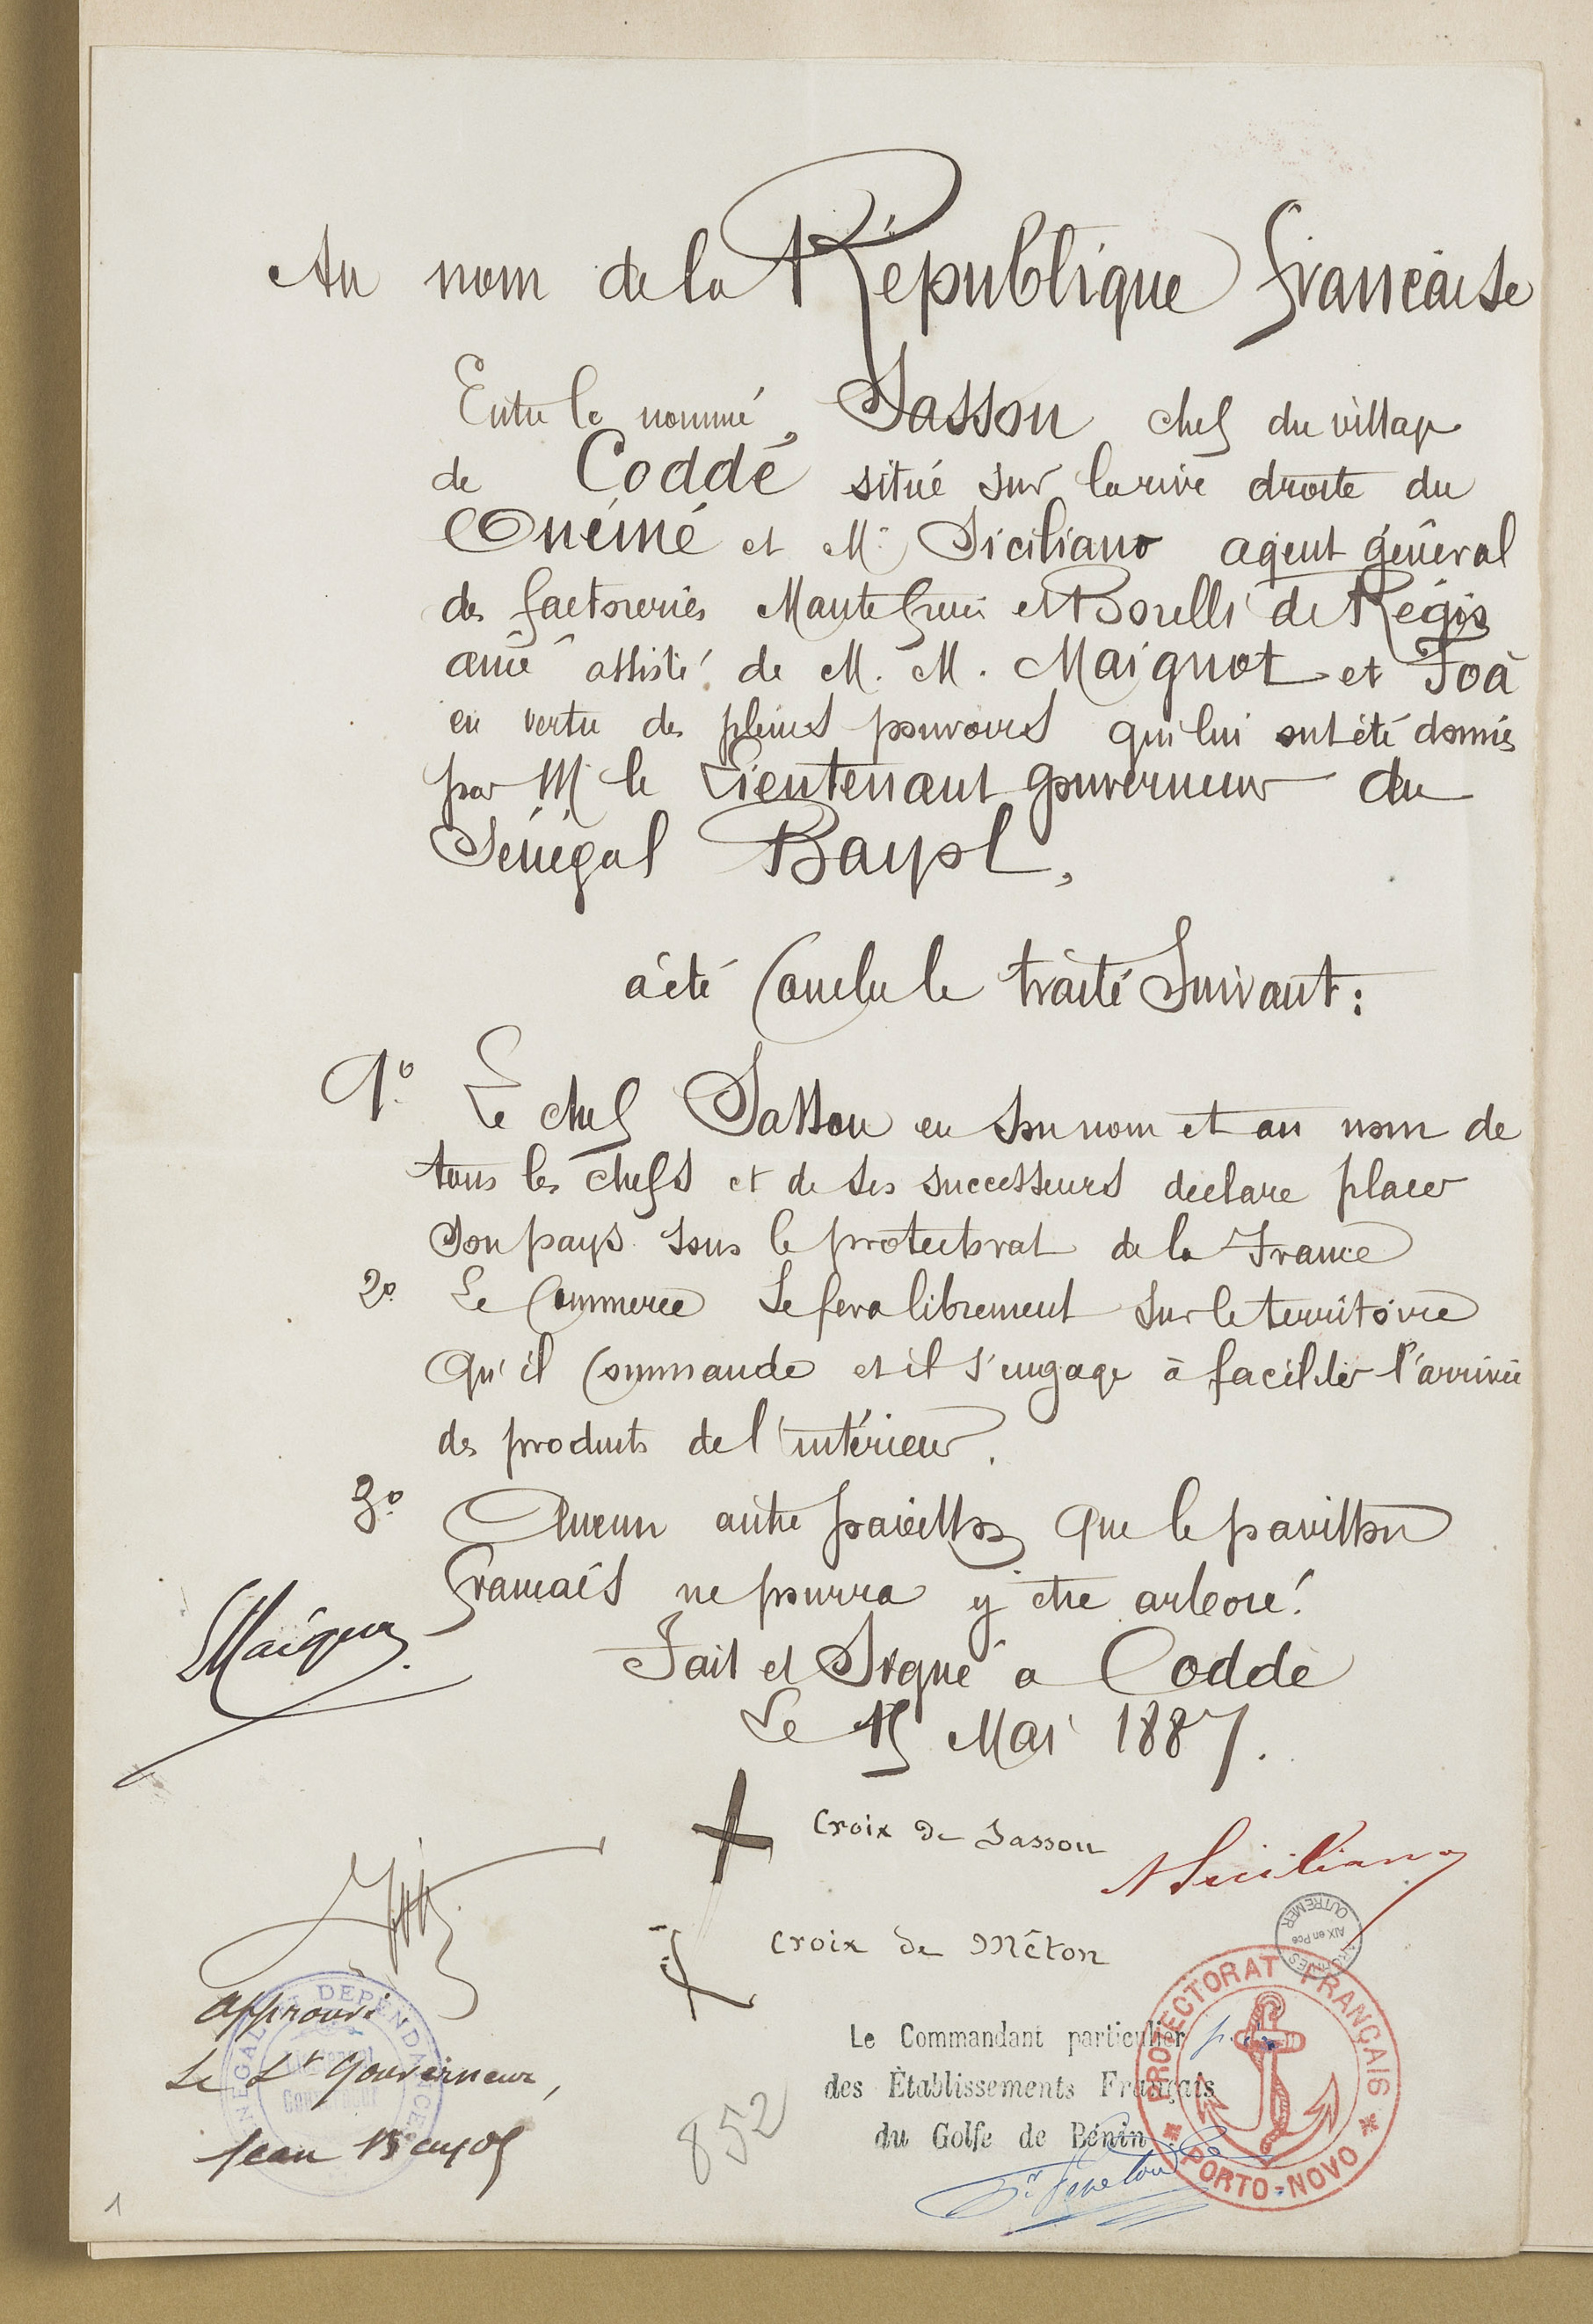 Au nom de la République française
Entre le nommé, Sasson chef du village
de Coddé situé sur la rive droite du
Ouémé et Mr Siciliano agent général
des factoreries Mante frères et Borelli de Régis
ainé assisté de M. M. Maignot et Foà
en vertu des pleins pouvoirs qui lui ont été donnés
par Mr le Lieutenant gouverneur du
Sénégal Bayol,
a été Conclu le traité Suivant :
1º Le chef Sasson en son nom et au nom de
tous les chefs et de ses successeurs déclare placer
Son pays sous le protectorat de la France
2º Le Commerce Se fera librement sur le territoire
Qu'il Commande et il s'engage à faciliter l'arrivée
des produits de l'intérieur.
3º Aucun autre pavillon Que le pavillon
français ne pourra y être arboré.
Fait et Signé à Coddè
Le 15 Mai 1887.
Croix de Sasson
A Siciliano
Croix de Mêton
approuvé
Le Lt Gouverneur,
Jean Bayol
Le Commandant particulier p.i.
des Établissements Français
du Golfe de Bénin
PROTECTORAT FRANÇAIS
PORTO-NOVO
SÉNÉGAL ET DÉPENDANCES
Gouverneur
ARCHIVES
OUTREMER
AIX en Pce
852
1